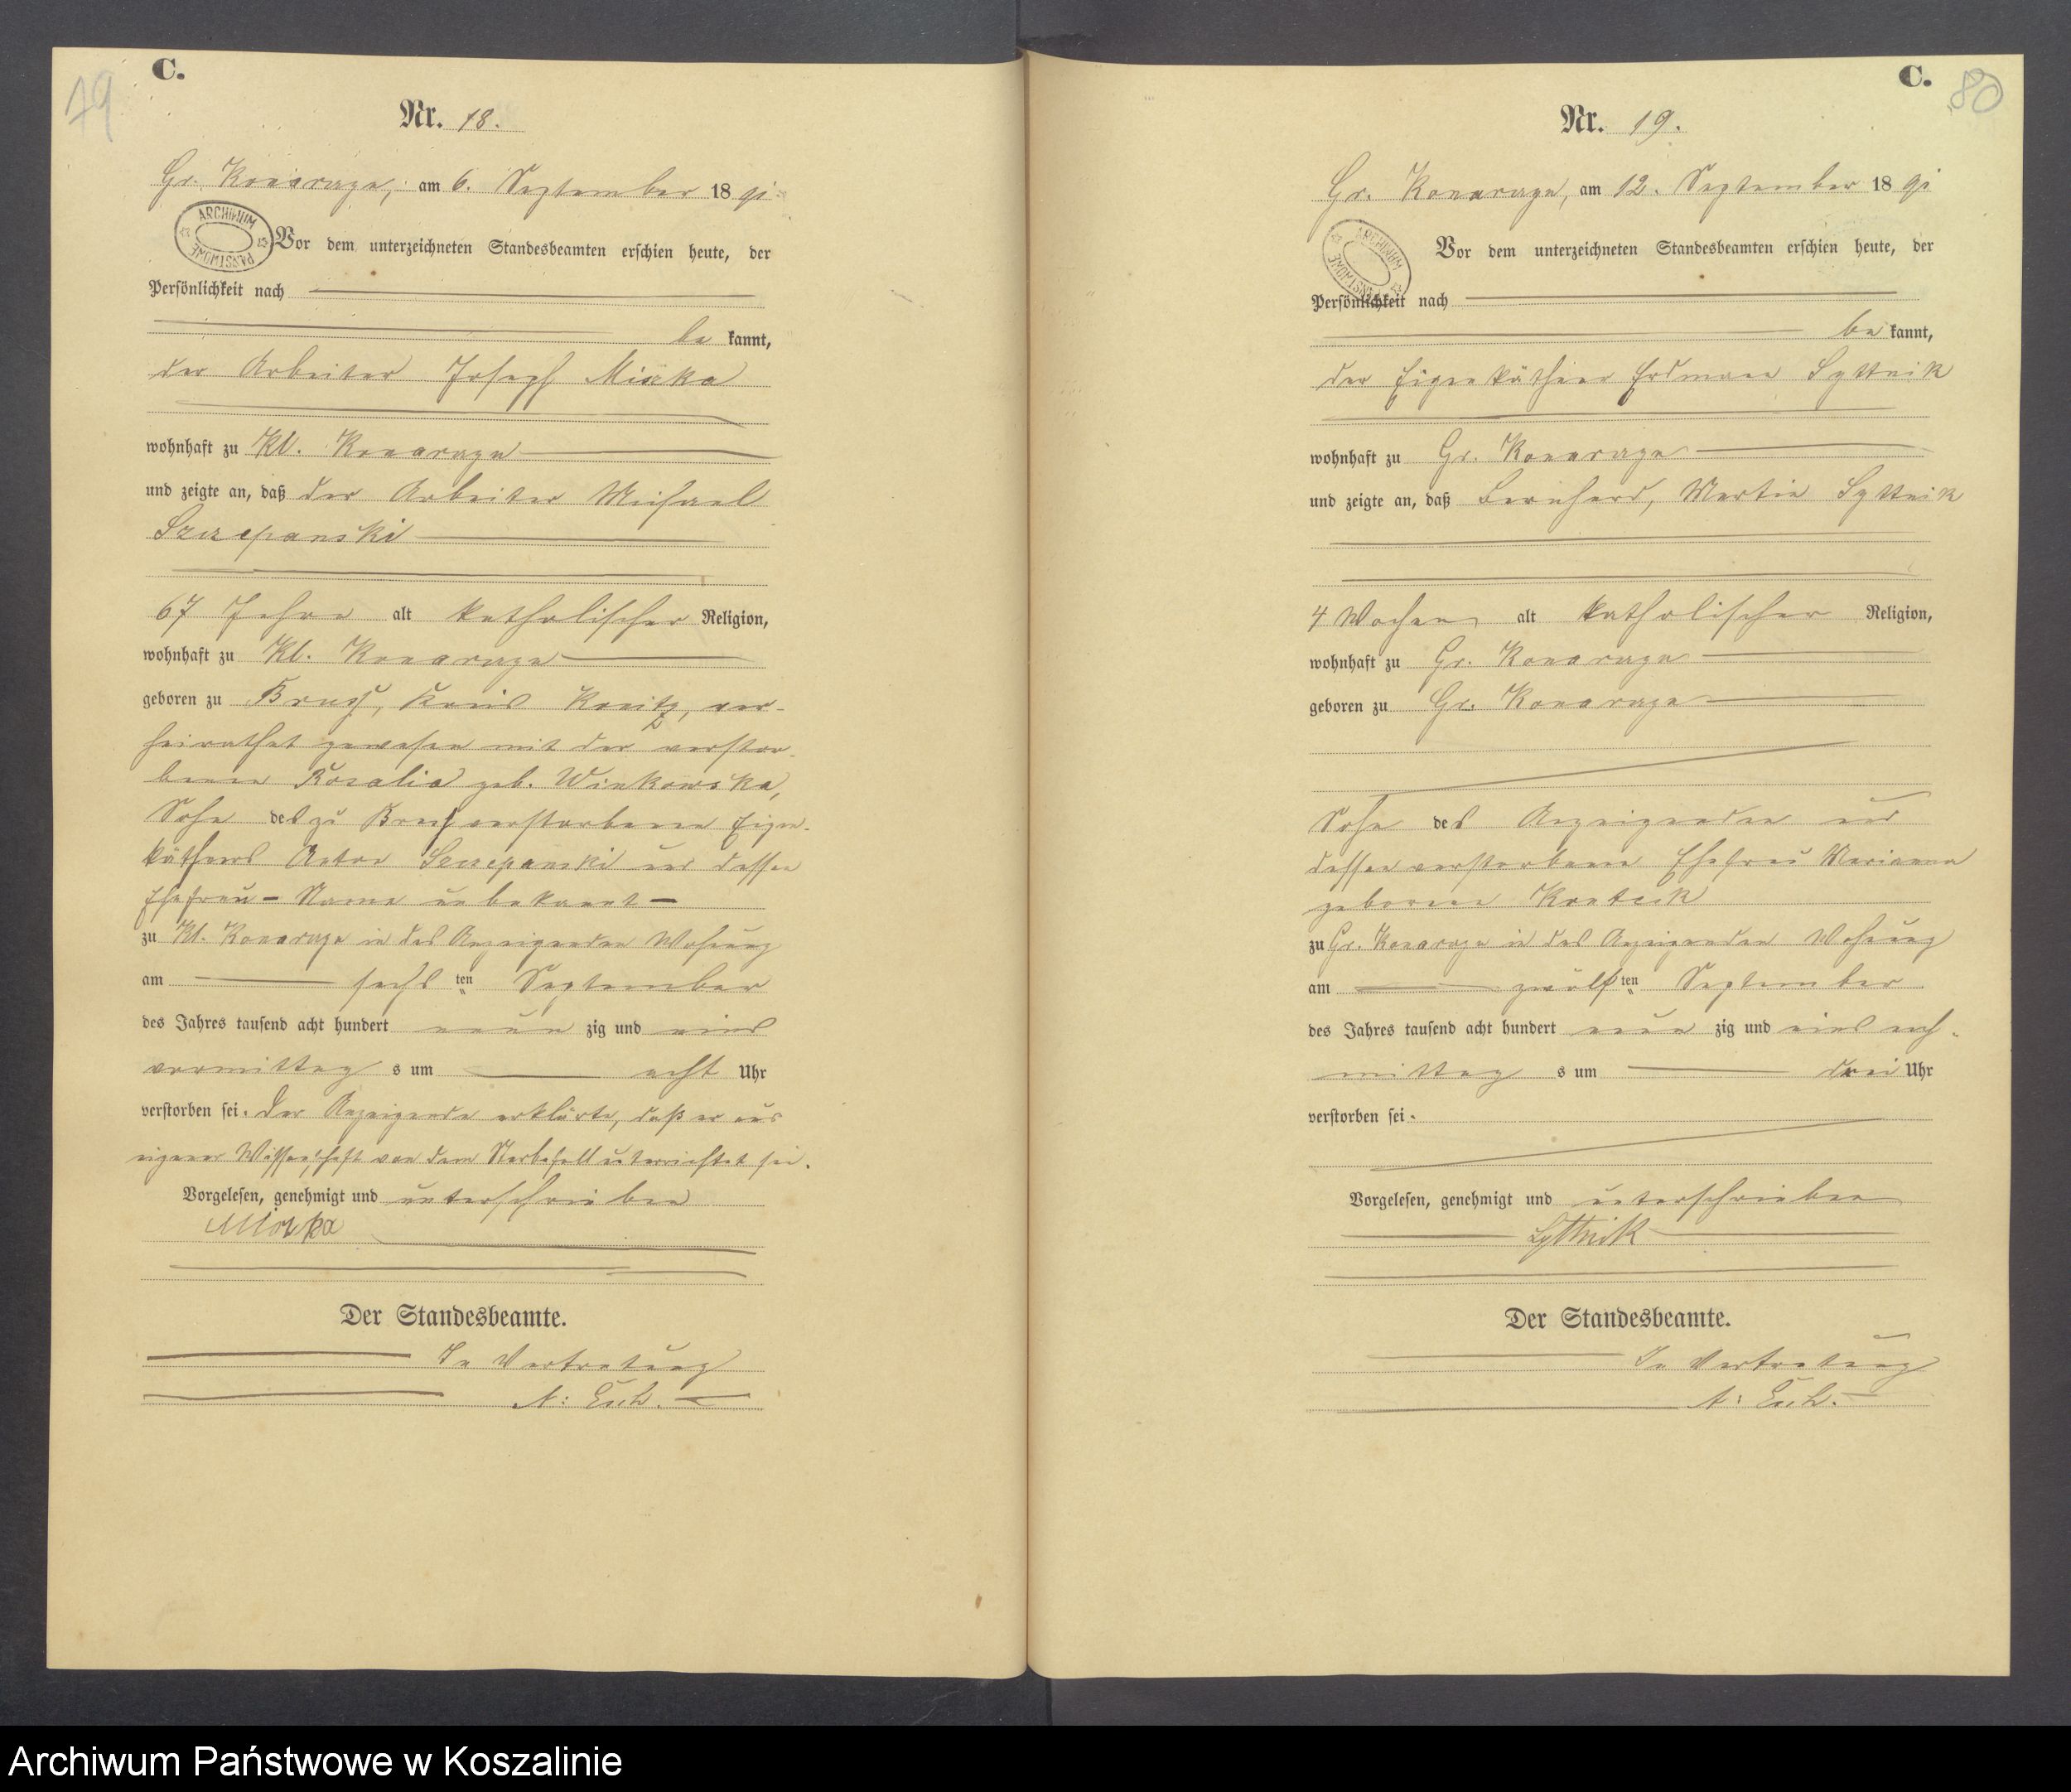 79
C.
Nr. 18.
Gr. Konarczyn, am 6. September 1891
ARCHIWUM PAŃSTWOWE
Vor dem unterzeichneten Standesbeamten erschien heute, der
Persönlichkeit nach
be kannt,
der Arbeiter Joseph
wohnhaft zu Kl. Konarczyn
und zeigte an, daß der Arbeiter Michael
Szczepanski
67 Jahre alt katholischer Religion,
wohnhaft zu Kl. Konarczyn
geboren zu Bruß, Kreis Konitz, ver-
heirathet gewesen mit der verstor-
benen Rosalia geb. Winkowska,
Sohn des zu Bruß verstorbenen Eigen-
käthners Anton Szczepanski und dessen
Ehefrau - Name unbekannt -
zu Kl. Konarczyn in des Anzeigenden Wohnung
am sechs ten September
des Jahres tausend acht hundert neun zig und eins
vormittag s um acht Uhr
verstorben sei. Der Anzeigende erklärte, daß er aus
eigener Wissenschaft von dem Sterbefall unterrichtet sei.
Vorgelesen, genehmigt und unterschrieben
Der Standesbeamte.
In Vertretung
80
C.
Nr. 19.
Gr. Konarczyn, am 12. September 1891
ARCHIWUM PAŃSTWOWE
Vor dem unterzeichneten Standesbeamten erschien heute, der
Persönlichkeit nach
be kannt,
der Eigenkäthner Erdmann Lyttnik
wohnhaft zu Gr. Konarczyn
und zeigte an, daß Bernhard, Martin Lyttnik
4 Wochen alt katholischer Religion,
wohnhaft zu Gr. Konarczyn
geboren zu Gr. Konarczyn
Sohn des Anzeigenden und
dessen verstorbenen Ehefrau Marianna
geborene
zu Gr. Konarczyn in des Anzeigenden Wohnung
am zwölf ten September
des Jahres tausend acht hundert neun zig und eins nach-
mittag s um drei Uhr
verstorben sei.
Vorgelesen, genehmigt und unterschrieben
Lyttnik
Der Standesbeamte.
In Vertretung
Archiwum Państwowe w Koszalinie